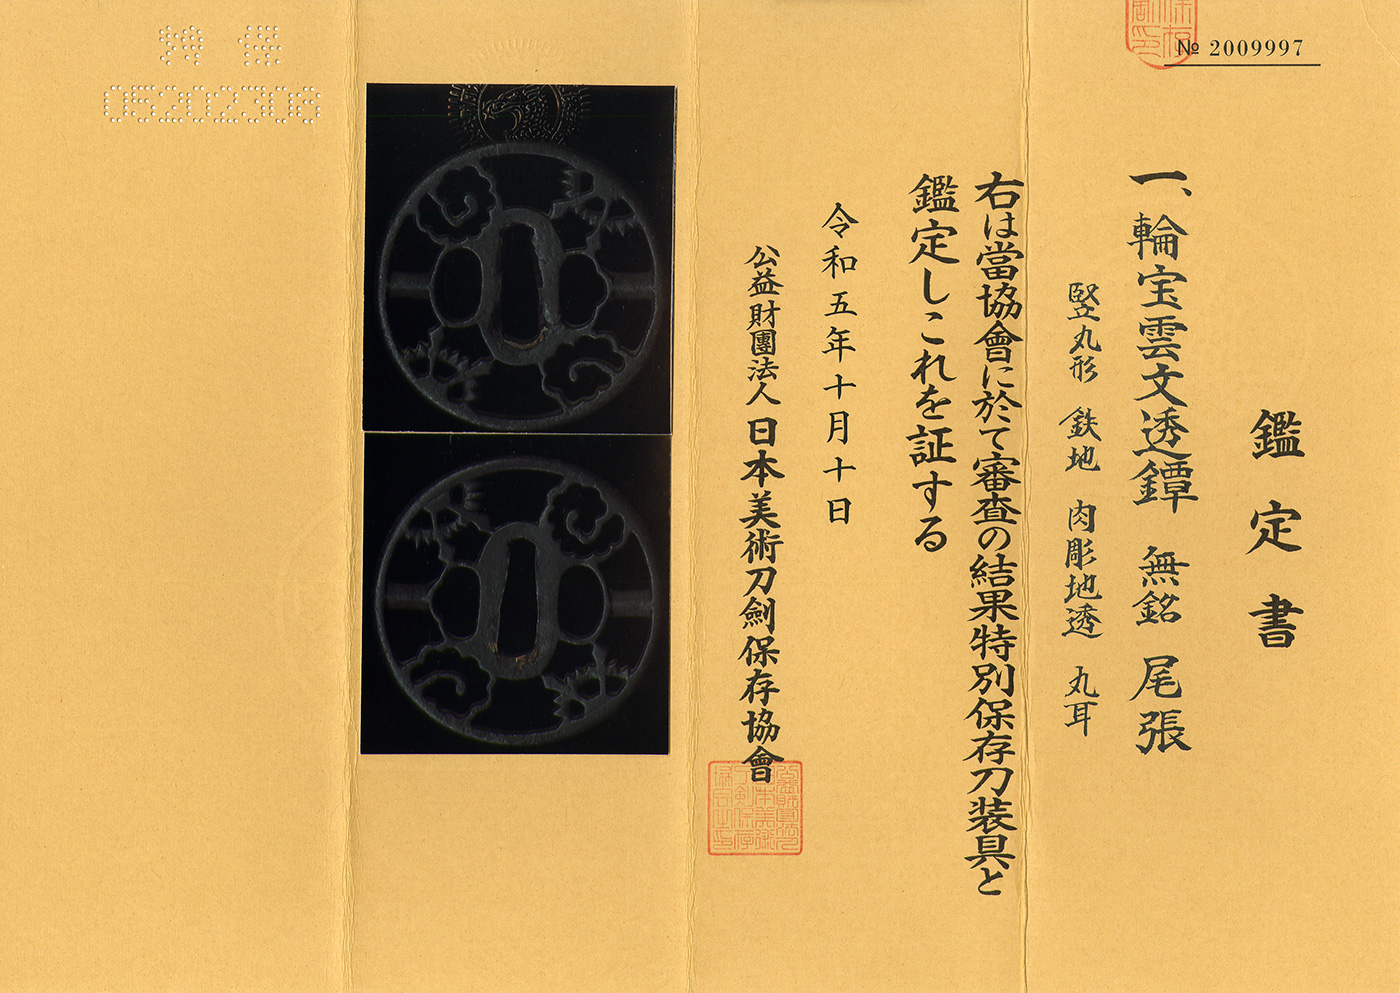 № 2009997
鑑定書
一、輪宝雲文透鐔 無銘 尾張
竪丸形 鉄地 肉彫地透 丸耳
右は當協會に於て審査の結果特別保存刀装具と
鑑定しこれを証する
令和五年十月十日
公益財團法人 日本美術刀劍保存協會
05202308